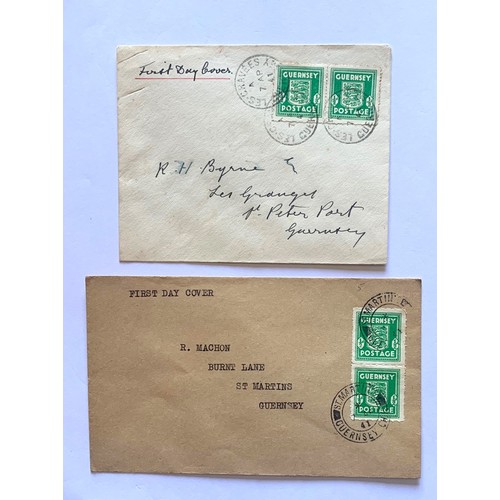 First Day Cover.
GUERNSEY GUERNSEY
POSTAGE POSTAGE
R H Byrne
Les Granges
St Peter Port
Guernsey
FIRST DAY COVER
R. MACHON
BURNT LANE
ST MARTINS
GUERNSEY
GUERNSEY
POSTAGE
GUERNSEY
POSTAGE
ST. MARTIN
41
GUERNSEY